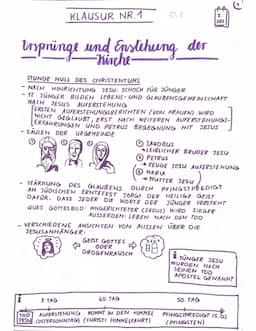 KLAUSUR NR. 1
Ursprünge und Enstehung der
Kirche
STUNDE NULL DES CHRISTENTUMS
- NACH HINRICHTUNG JESU: SCHOCK FÜR JÜNGER
- 12 JÜNGER BILDEN LEBENS- UND GLAUBENSGEMEINSCHAFT
NACH JESUS AUFERSTEHUNG
ERSTEN AUFERSTEHUNGSBERICHTEN (VON FRAUEN) WIRD
NICHT GEGLAUBT, ERST NACH WEITEREN AUFERSTEHUNGS-
ERFAHRUNGEN UND PETRUS BEGEGNUNG MIT JESUS
- SÄULEN DER URGEMEINDE
① JAKOBUS
→ LEIBLICHER BRUDER JESU
② PETRUS
→ ZEUGE JESU AUFERSTEHUNG
③ MARIA
→ MUTTER JESU
- STÄRKUNG DES GLAUBENS DURCH PFINGSTPREDIGT
AM JÜDISCHEN ERNTEFEST SORGT DER HEILIGE GEIST
DAFÜR, DASS JEDER DIE WORTE DER JÜNGER VERSTEHT
AUSSERDEM: LEBEN NACH DEM TOD
- VERSCHIEDENE ANSICHTEN VON AUSSEN ÜBER DIE
JESUSANHÄNGER:
GEIST GOTTES
ODER
DROGENRAUSCH
JÜNGER JESU
WURDEN NACH
SEINEN TOD
APOSTEL GENANNT
3. TAG
50. TAG
TOD
JESU
AUFERSTEHUNG
KOMMT IN DEN HIMMEL
PFINGSTPREDIGT
(OSTERSONNTAG)
(CHRISTI HIMMELFAHRT)
(PFINGSTEN)